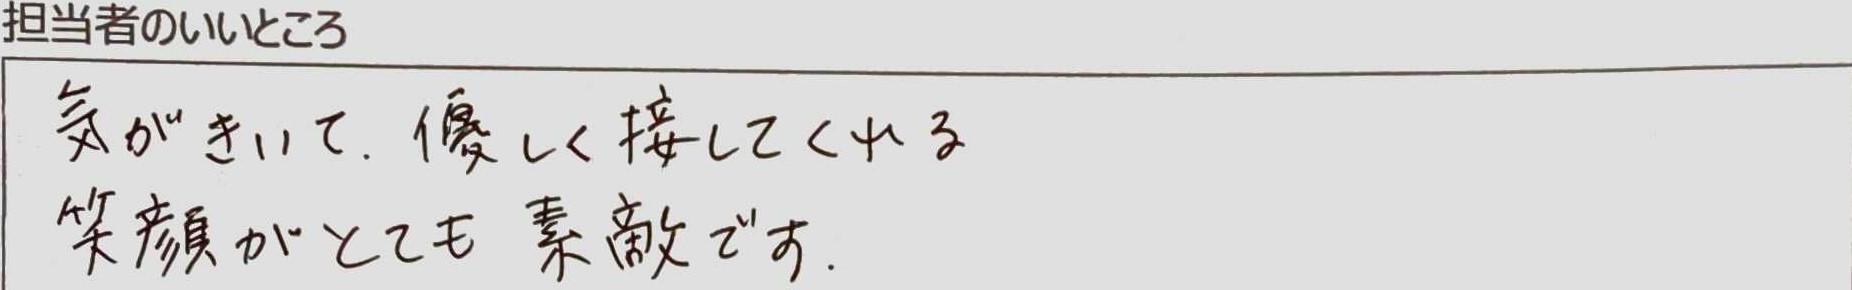 担当者のいいところ
気がきいて. 優しく接してくれる
笑顔がとても素敵です.